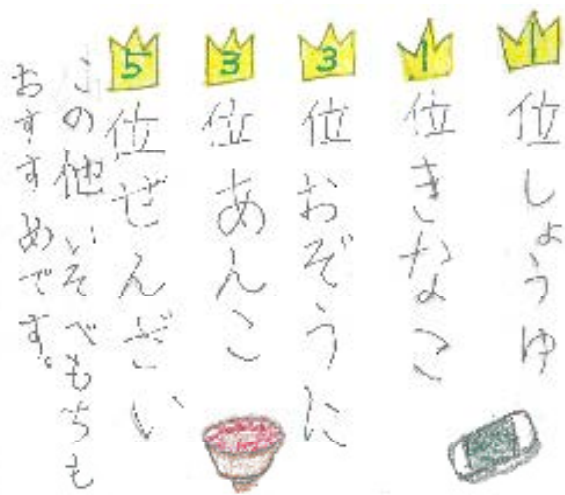 1位しょうゆ
1位きなこ
3位おぞうに
3位あんこ
5位ぜんざい
この他いそべもちも
おすすめです。